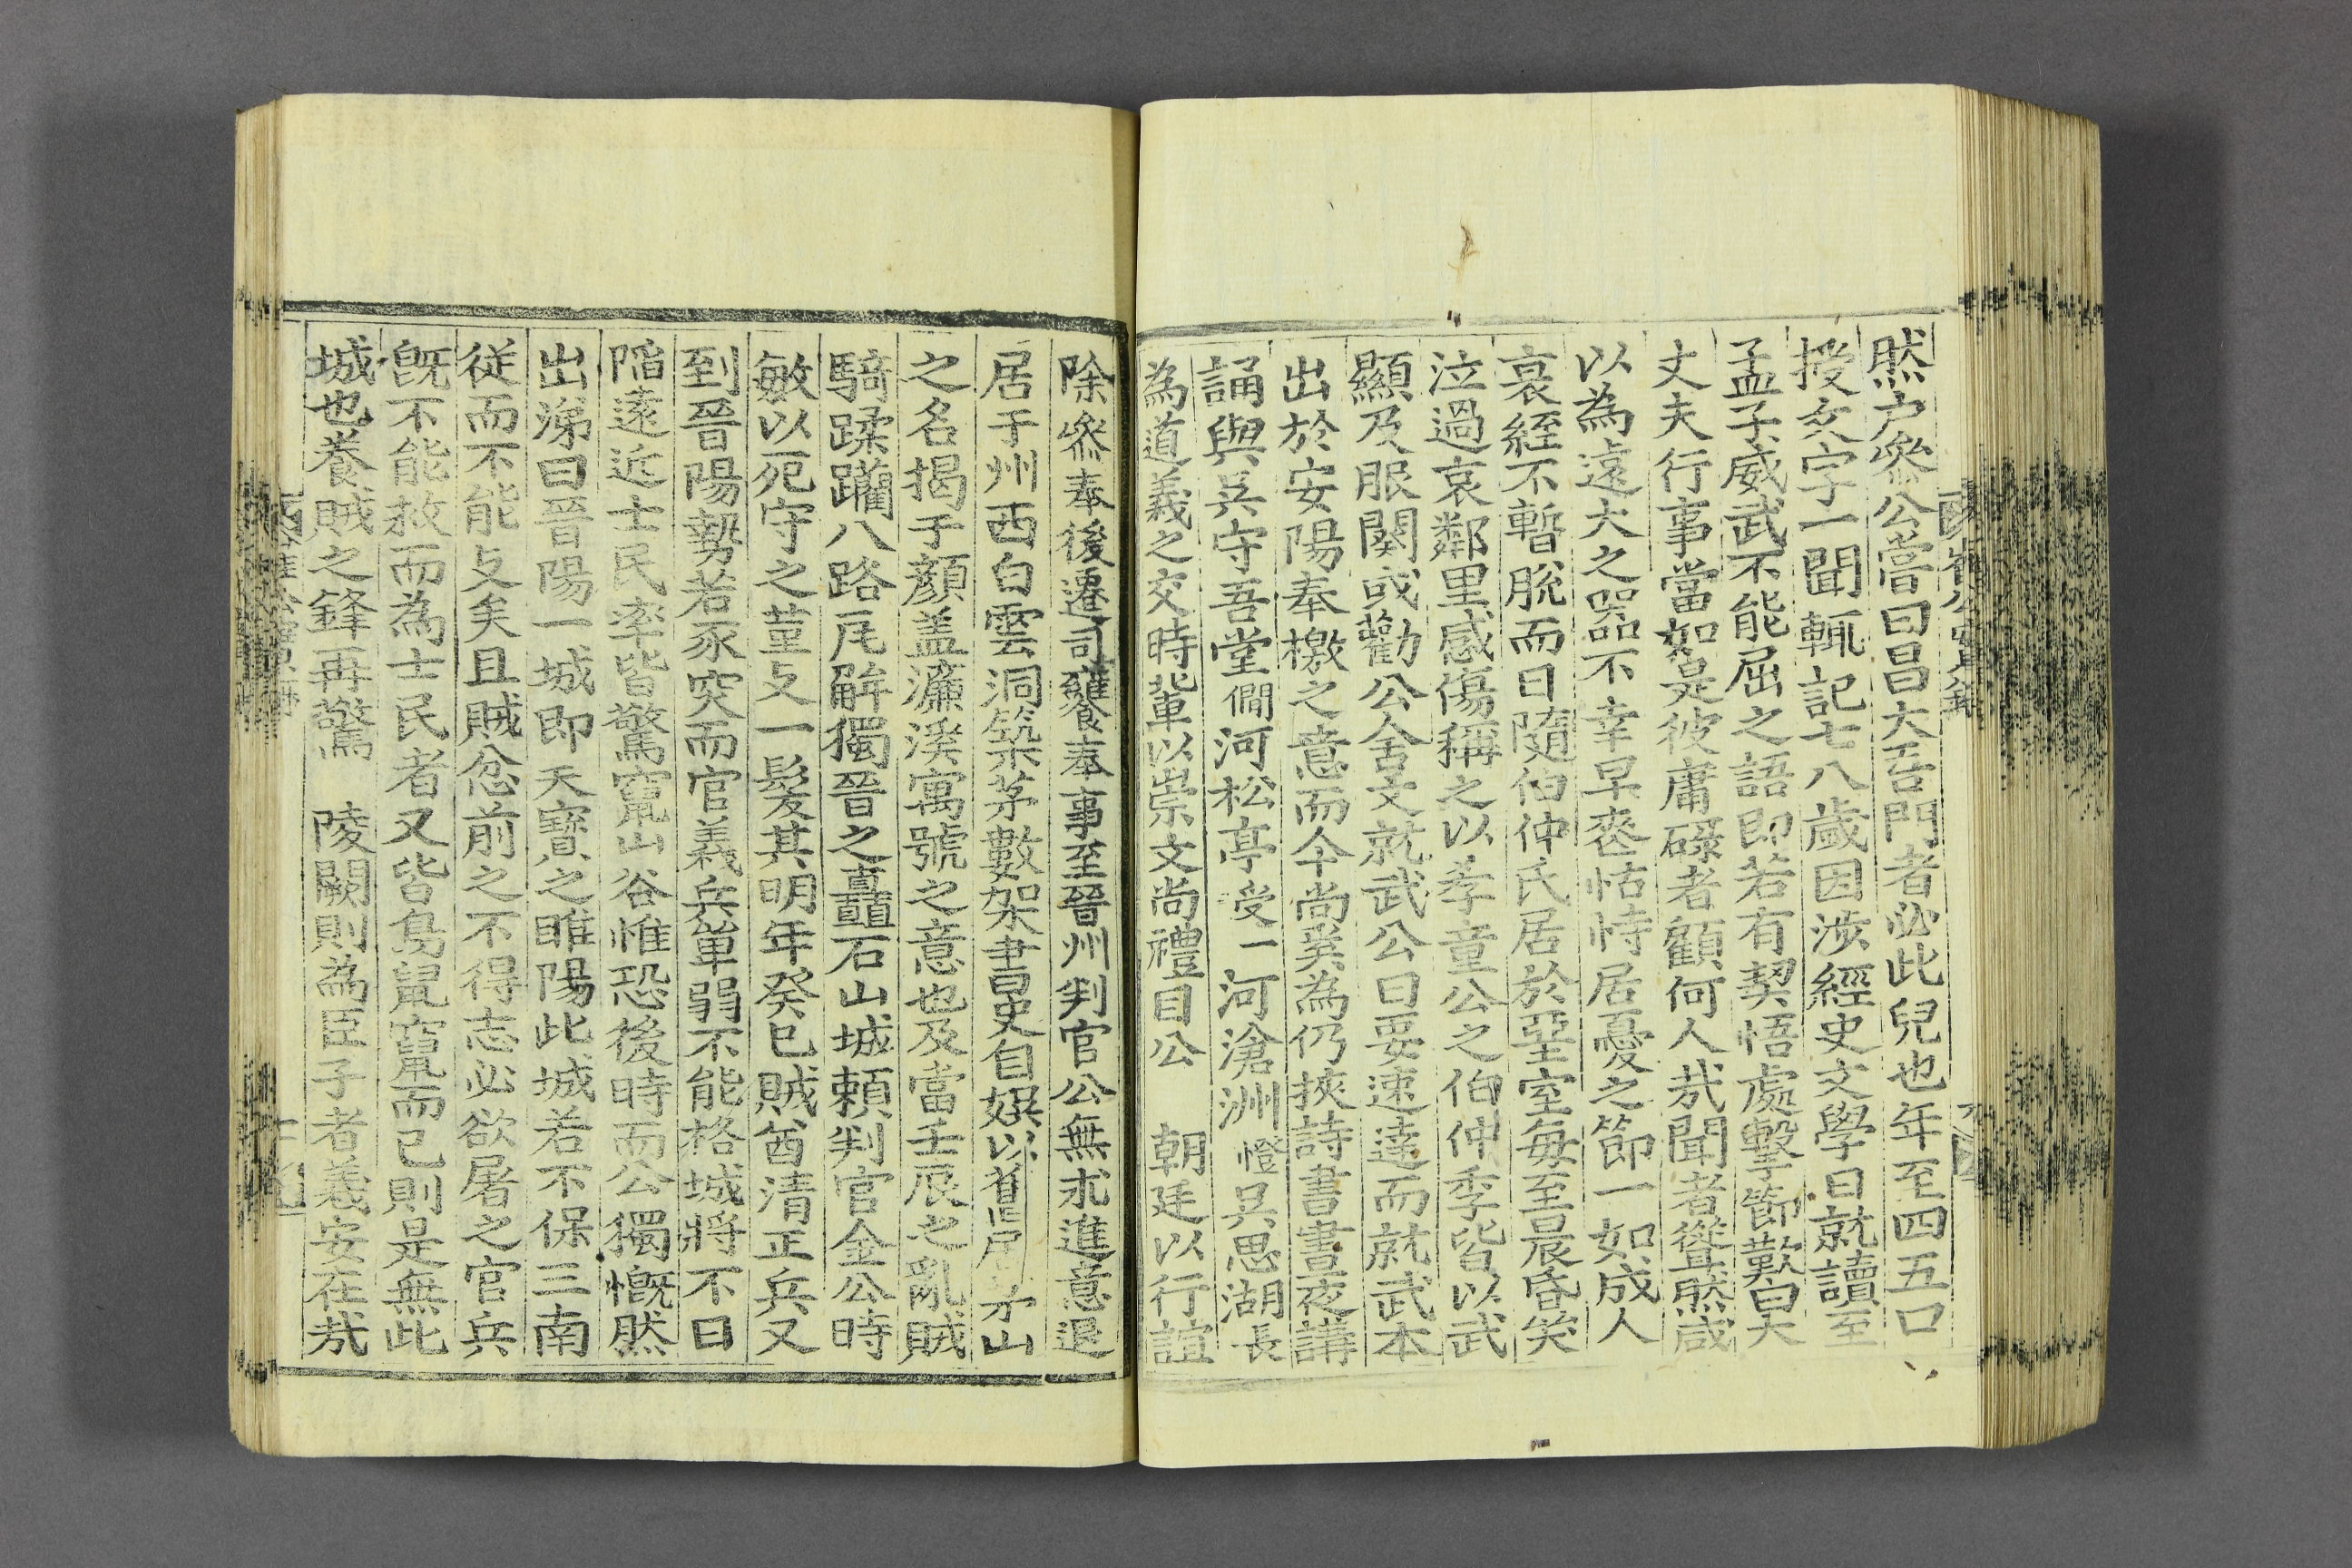 然户叅公嘗曰昌大吾門者必此兒也年至四五口
授文字一聞輒記七八歲因涉經史文學日就讀至
孟子威武不能屈之語即若有契悟處擊節歎曰大
丈夫行事當如是彼庸碌者顧何人㢤聞者聳然咸
以為遠大之器不幸早喪怙恃居憂之節一如成人
哀絰不暫脫而日隨伯仲氏居於堊室每至晨昏哭
泣過哀鄰里感傷稱之以孝童公之伯仲季皆以武
顯及服闋或勸公舍文就武公曰要速達而就武本
出於安陽奉檄之意而今尚奚為仍挾詩書晝夜講
誦與吳守吾堂僩河松亭受一河滄洲憕吳思湖長
為道義之交時軰以崇文尚禮目公 朝廷以行誼
除叅奉後遷司饔奉事至晉州判官公無求進意退
居于州西白雲洞築茅數架書史自娛以舊居芳山
之名揭于顏盖濂溪寓號之意也及當壬辰之亂賊
騎蹂躪八路瓦解獨晉之矗石山城頼判官金公時
敏以死守之堇攴一髮其明年癸巳賊酋清正兵又
到晉陽勢若豕突而官義兵單弱不能格城將不日
陷遠近士民率皆驚竄山谷惟恐後時而公獨慨然
出涕曰晉陽一城即天寶之睢陽此城若不保三南
従而不能攴矣且賊忿前之不得志必欲屠之官兵
旣不能救而為士民者又皆鳥鼠竄而已則是無此
城也養賊之鋒再驚 陵闕則為臣子者義安在㢤